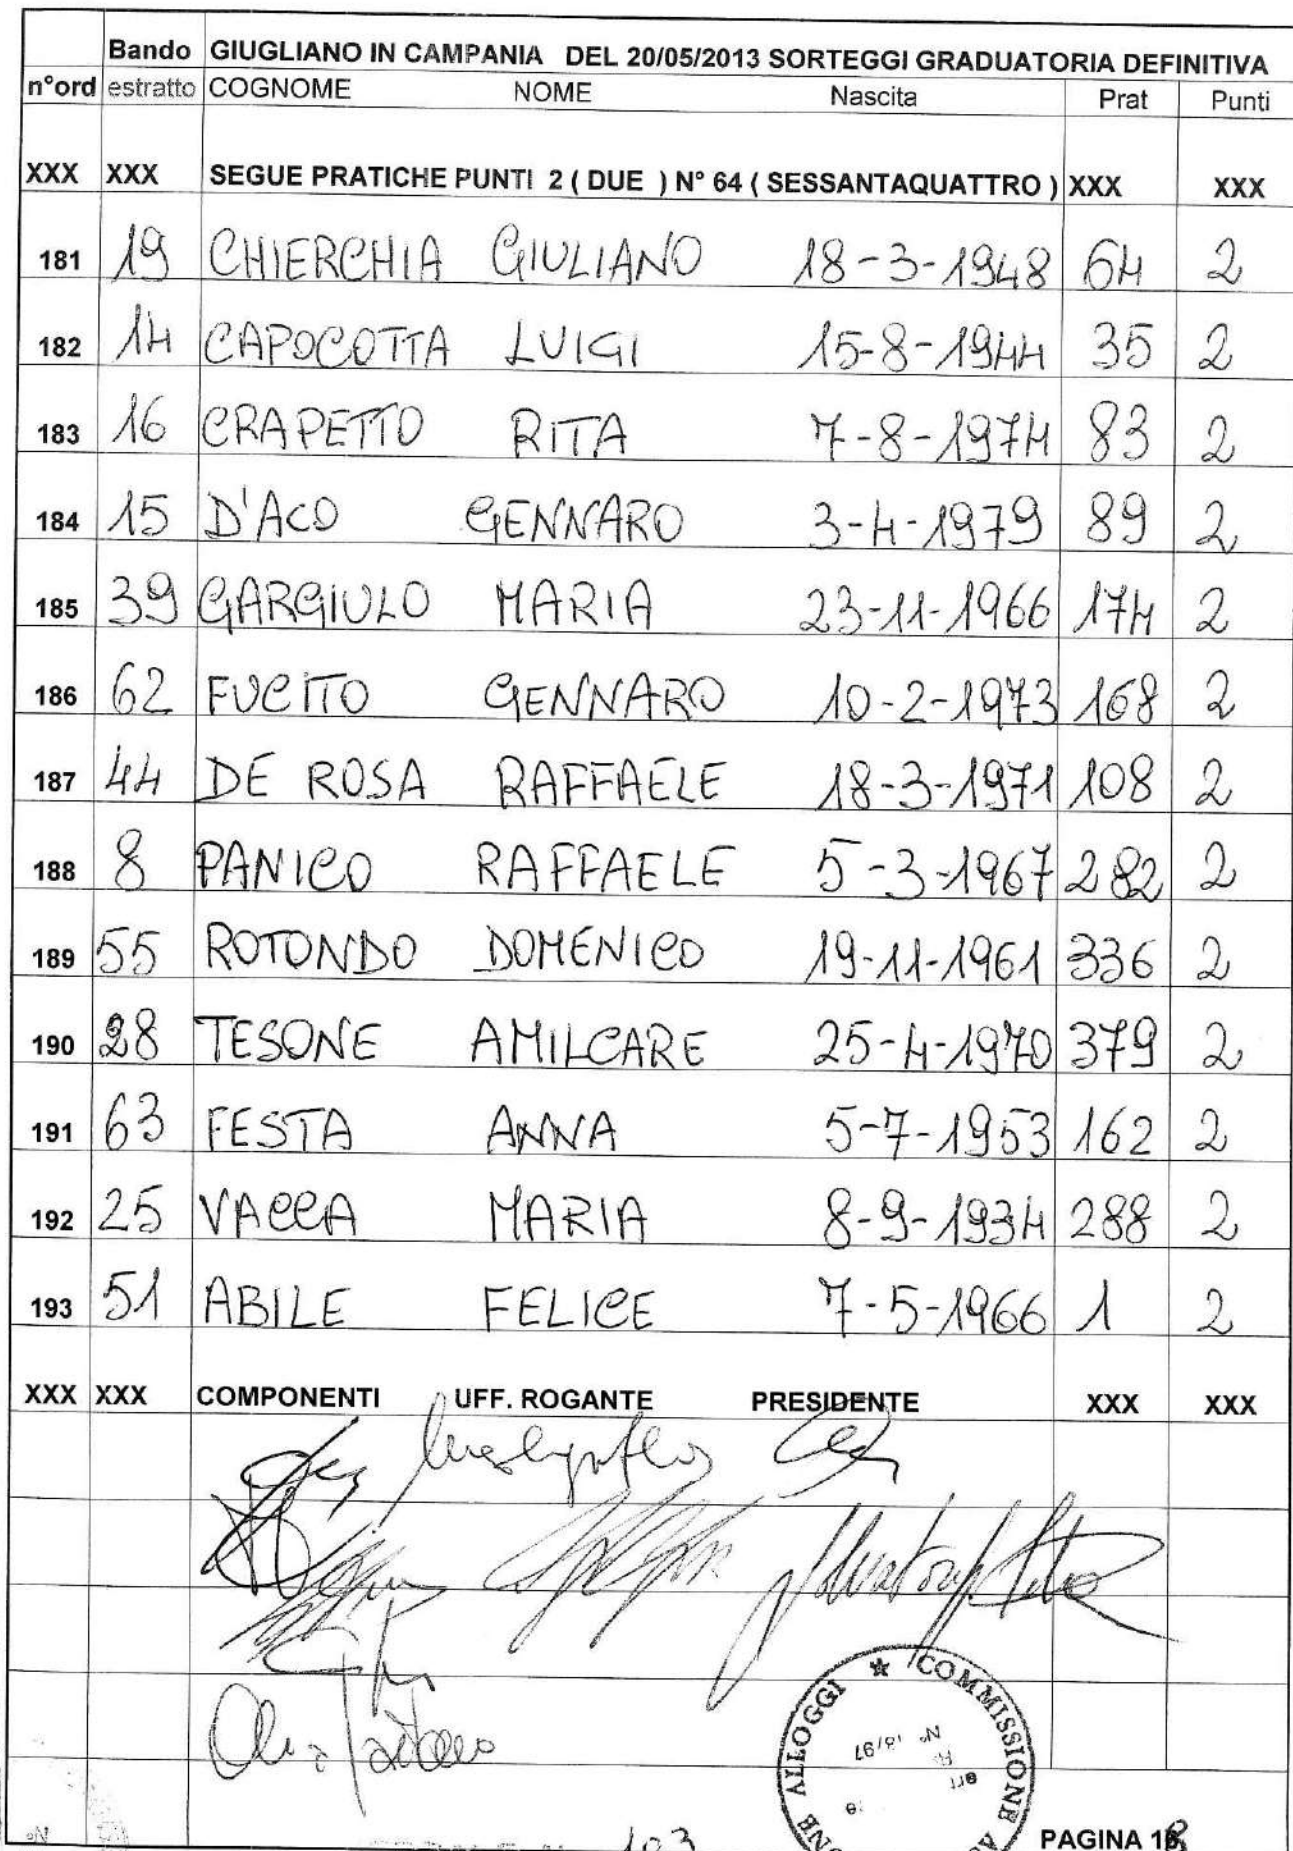 Bando GIUGLIANO IN CAMPANIA DEL 20/05/2013 SORTEGGI GRADUATORIA DEFINITIVA
n°ord estratto COGNOME NOME Nascita Prat Punti
XXX XXX SEGUE PRATICHE PUNTI 2 ( DUE ) N° 64 ( SESSANTAQUATTRO ) XXX XXX
181 19 CHIERCHIA GIULIANO 18-3-1948 64 2
182 14 CAPOCOTTA LUIGI 15-8-1944 35 2
183 16 CRAPETTO RITA 7-8-1974 83 2
184 15 D'ACO GENNARO 3-4-1979 89 2
185 39 GARGIULO MARIA 23-11-1966 174 2
186 62 FUCITO GENNARO 10-2-1973 168 2
187 44 DE ROSA RAFFAELE 18-3-1971 108 2
188 8 PANICO RAFFAELE 5-3-1967 282 2
189 55 ROTONDO DOMENICO 19-11-1961 336 2
190 28 TESONE AMILCARE 25-4-1970 379 2
191 63 FESTA ANNA 5-7-1953 162 2
192 25 VACCA MARIA 8-9-1934 288 2
193 51 ABILE FELICE 7-5-1966 1 2
XXX XXX COMPONENTI UFF. ROGANTE PRESIDENTE XXX XXX
ALLOGGI ★ COMMISSIONE
N° 18/97
103
PAGINA 18